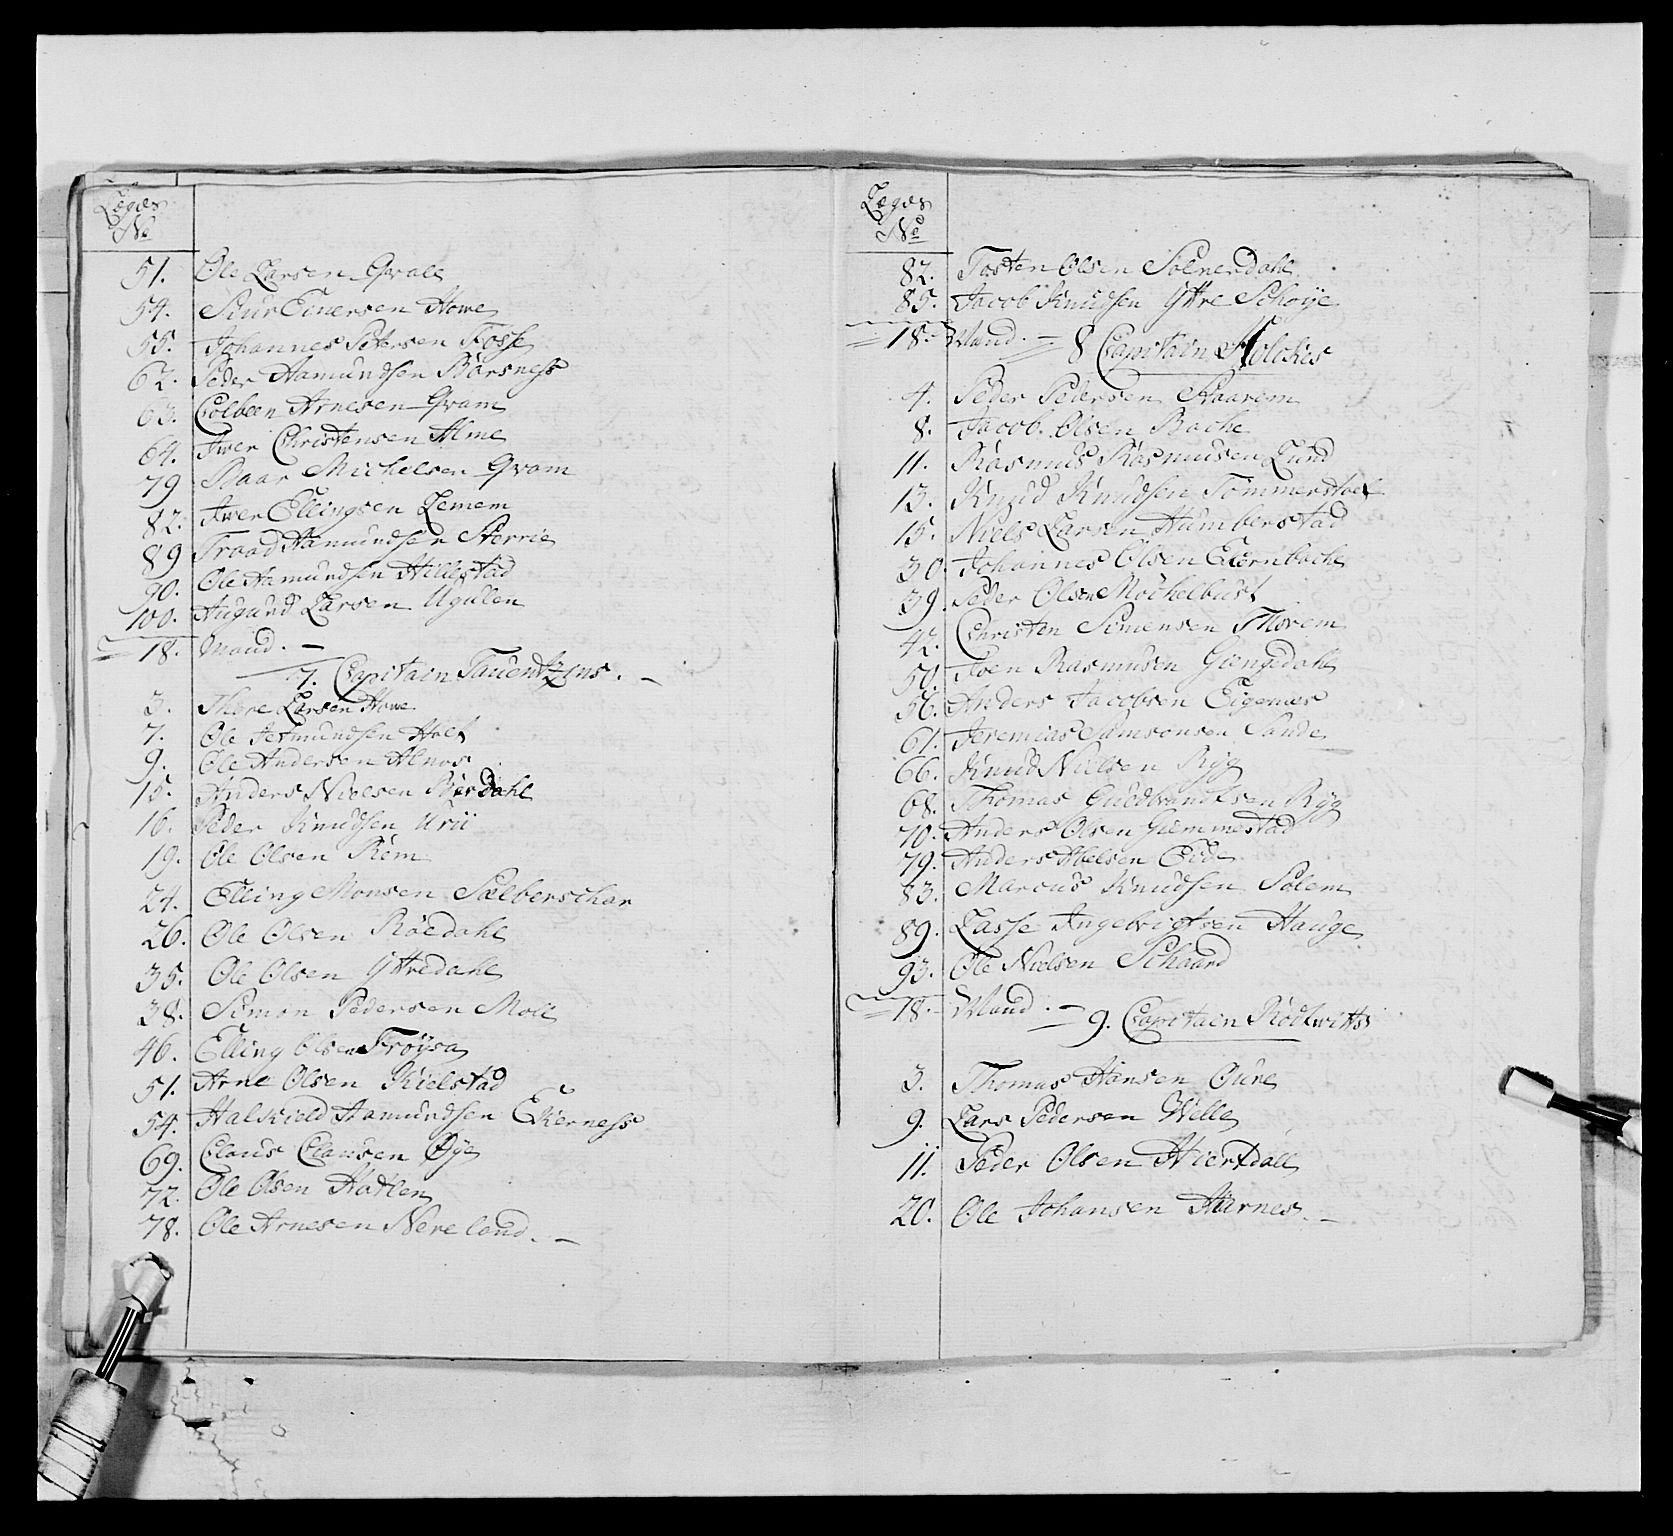 Lægds
No
51. Ole Larsen Qvale
54. Siur Einersen Howe
55. Johannes Petersen Fosse
62. Peder Aamundsen Börsness
63. Colbeen Arnesen Qvam
64. Iwer Christensen Alme
79 Baar Michelsen Qvam
82. Iwer Ellingsen Lemem
89 Troad Aamundsen Sterrie
90. Ole Aamundsen Hillestad
100. Augund Larsen Ugulen
18. Mand. —
7. Capitain Tauentzins. —
3. Thore Larsen Howe
7. Ole Jetmundsen Holt
9. Ole Andersen Alnos
15. Anders Nielsen Bordahl
16. Peder Knudsen Urii
19. Ole Olsen Rem
24. Elling Monsen Sælberschar
26. Ole Olsen Röedahl
35. Ole Olsen Ytredahl
38. Simon Pedersen Moll
46. Elling Olsen Fröysa
51. Arne Olsen Kielstad
54. Halkield Aamundsen Ekerness
69. Claus Clausen Öye
72. Ole Olsen Hatlen
78. Ole Arnesen Nereland. —
Lægds
No
82. Tosten Olsen Solnerdahl
85. Jacob Knudsen Yttre Schoije
18. Mand. —
8 Capitain Holckes
4. Peder Pedersen Staarem
8. Jacob Olsen Bache
11. Rasmus Rasmusen Lund
13. Knud Knudsen Tommerstoel
15. Niels Larsen Humberstad
30. Johannes Olsen Eternbache
39. Peder Olsen Mochelbust
42. Christen Simensen Thorem
50. Joen Rasmusen Giengedahl
56. Anders Jacobsen Eigenæs
61. Jeremias Samsonsen Sande
66. Knud Nielsen Ryg
68. Thomas Guldbrandtsen Ryg
70. Anders Olsen Giemmestad
79. Anders Abelsen Eide
83. Marcus Knudsen Solem
89. Lasse Ingebrigtsen Hauge
93. Ole Nielsen Schaard
18. Mand. —
9. Capitain Rödtwitts
3. Thomas Hansen Oure
9. Lars Pedersen Wille
11. Peder Olsen Hiertdall
20. Ole Johansen Aarnes. —